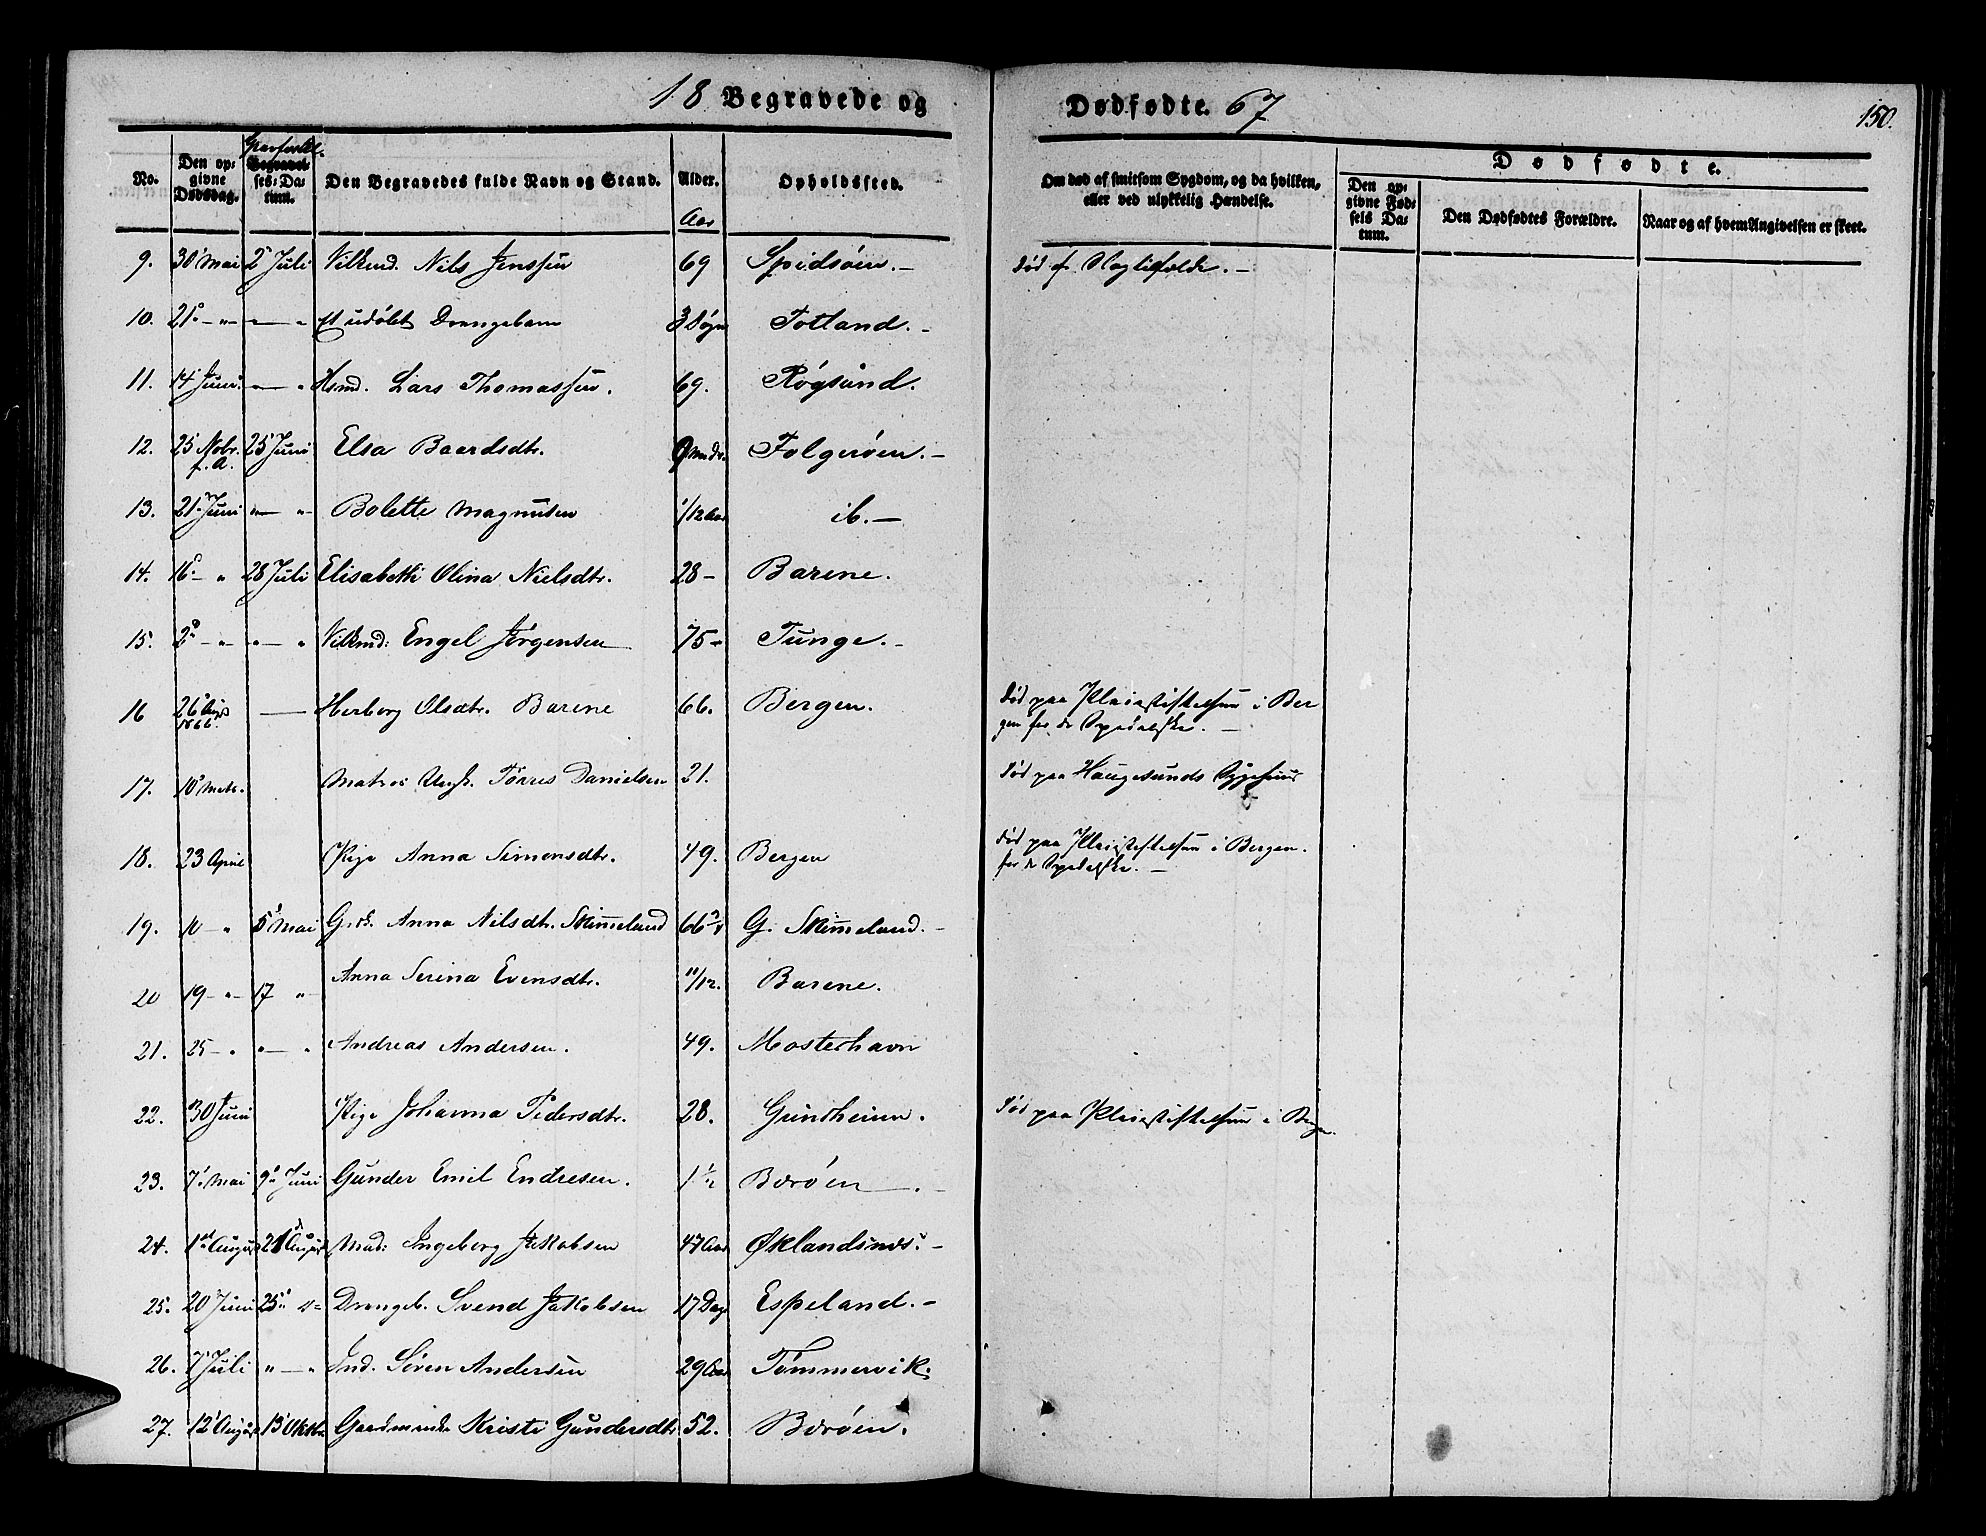 18 Begravede og Dødfødte. 67
150.
No. Den opgivne Dødsdag. Begravelses-Datum. Den Begravedes fulde Navn og Stand. Alder. Opholdssted. Om død af smitsom Sygdom, og da hvilken, eller ved ulykkelig Hændelse. Dødfødte.
Den opgivne Fødsels Datum. Den Dødfødtes Forældre. Naar og af hvem Angivelsen er skeet.
Aar
9. 30 Mai 2 Juli Nils Jenssen 69 Spidsøen.-
10. 21 - " - " et udøbt Drengebarn 3 Døgn Totland.-
11. 14 Juni - " Hsmd. Lars Thomassen. 69. Røgsund.
12. 25 Nobr. f. A. 25 Juni Elsa Baardsdtr. 9 Mndr. Folgerøen.-
13. 21 Juni " - " Bolette Magnusen 1/12 Aar ib.-
14. 16 - " 28 Juli Elisabeth Olina Nielsdtr. 28 - Barene.
15. 2 - " " - " Engel Jørgensen 75 - Tunge.-
16 26 Aug 1866 - Herborg Olsdtr. Barene 66. Bergen. død paa Pleiestiftelsen i Bergen for de Spedalske.-
17. 10 Matros Ungk. Tørres Danielsen 21. død paa Haugesunds Sygehuus
18. 23 April Pige Anna Simonsdtr. 49. Bergen død paa Pleiestiftelsen i Bergen. for de Spedalske.-
19. 10 - " 5 Mai Anna Nilsdtr. Skimeland 66 G. Skimeland.-
20 19 - " - 17 " - Anna Serina Evensdtr. 11/12. Barene.
21. 25 - " " - " Andreas Andersen. 49. Mosterhavn
22. 30 Juni Pige Johanna Pedersdtr. 28. død paa Pleiestiftelsen i
23. 7 Mai 9 Juni Gunder Emil Endresen. 1 1/2 Børøen.-
24. 1 August 21 August Mad: Ingeborg Jakobsen 47 Aar Øklandsnds:-
25. 20 Juni 25 Drengeb. Svend Jakobsen 17 Dage Espeland.-
26. 7 Juli " - " Ind. Søren Andersen 29 Aar Tømmervik.
27. 12 August 13 Oktbr Kristi Gundersdtr 52. Børøen.